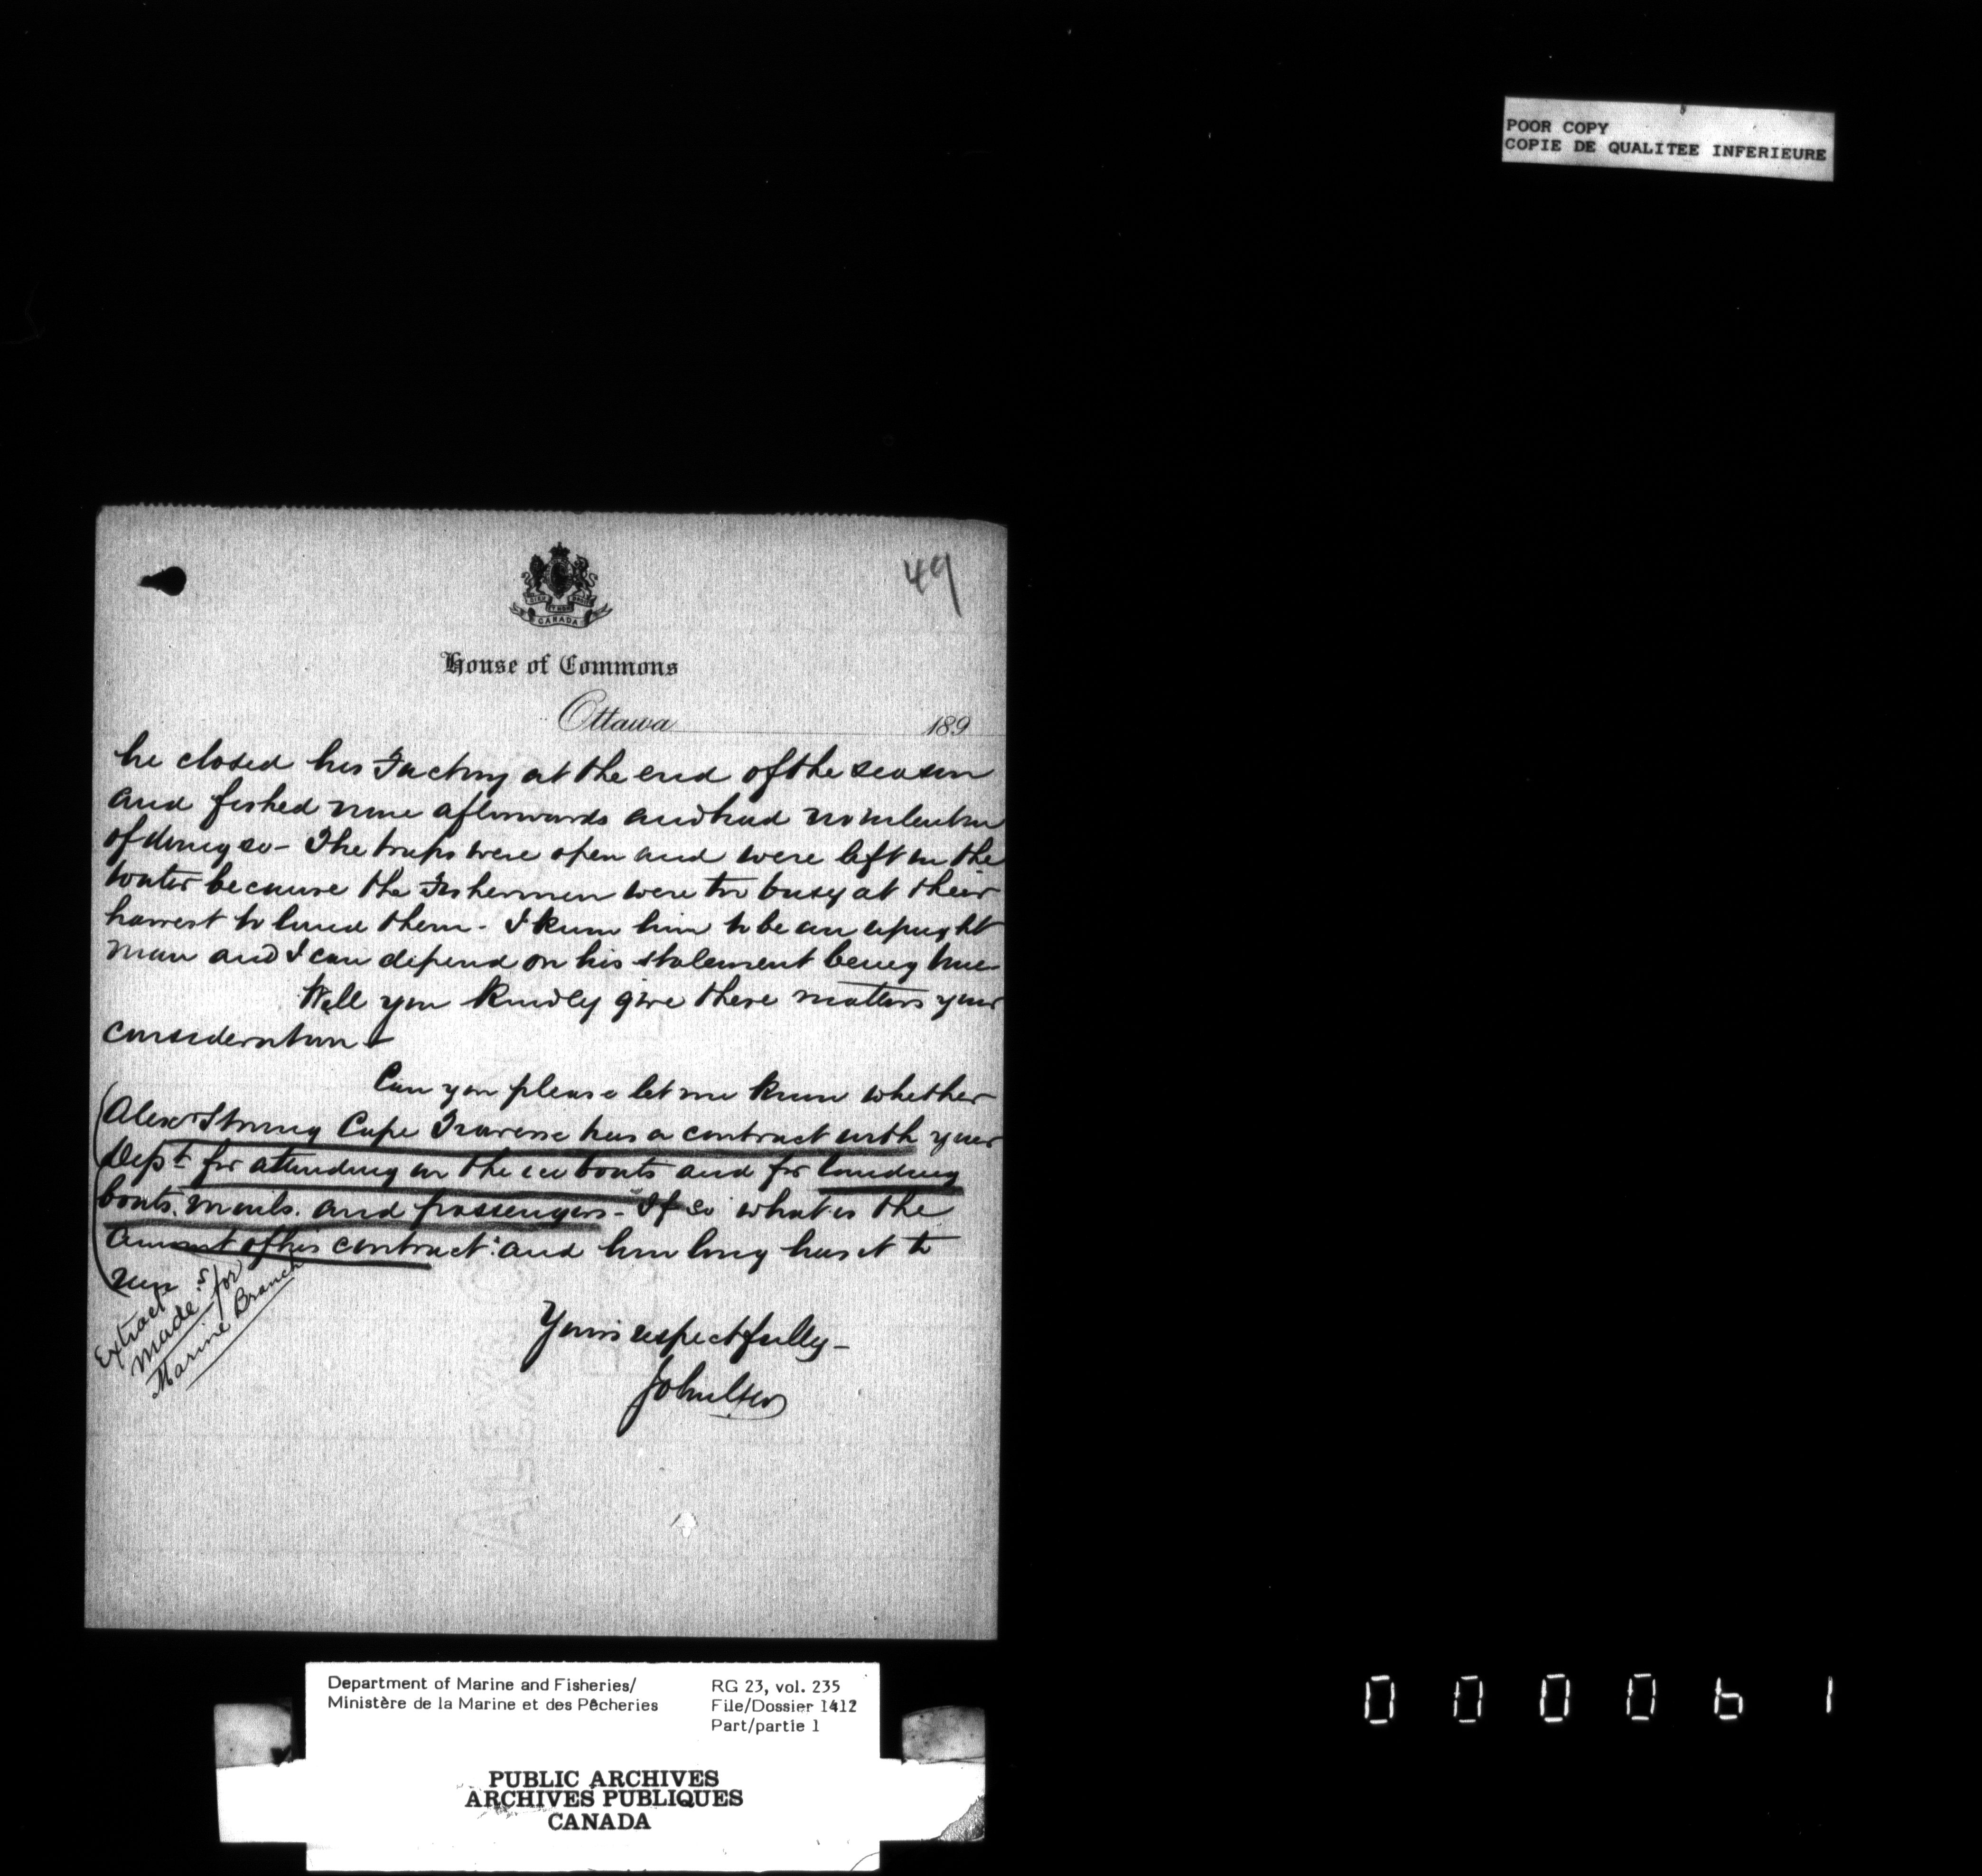 POOR COPY
COPIE DE QUALITEE INFERIEURE
49
CANADA
House of Commons
Ottawa 189
he closed his Factory at the end of the season
and fished none afterwards and had no intention
of doing so - The traps were open and were left in the
water because the Fishermen were too busy at their
harvest to land them - I know him to be an upright
man and I can depend on his statement being true
Will you kindly give these matters your
consideration -
Can you please let me know whether
Alexr Strong Cape Traverse has a contract with your
Dept for attending on the ice boats and for landing
boats. mails. and passengers - If so what is the
amount of his contract: and how long has it to
run
Extract
made for
Marine Branch
Yours respectfully -
Department of Marine and Fisheries/
Ministère de la Marine et des Pêcheries
RG 23, vol. 235
File/Dossier 1412
Part/partie 1
PUBLIC ARCHIVES
ARCHIVES PUBLIQUES
CANADA
000061